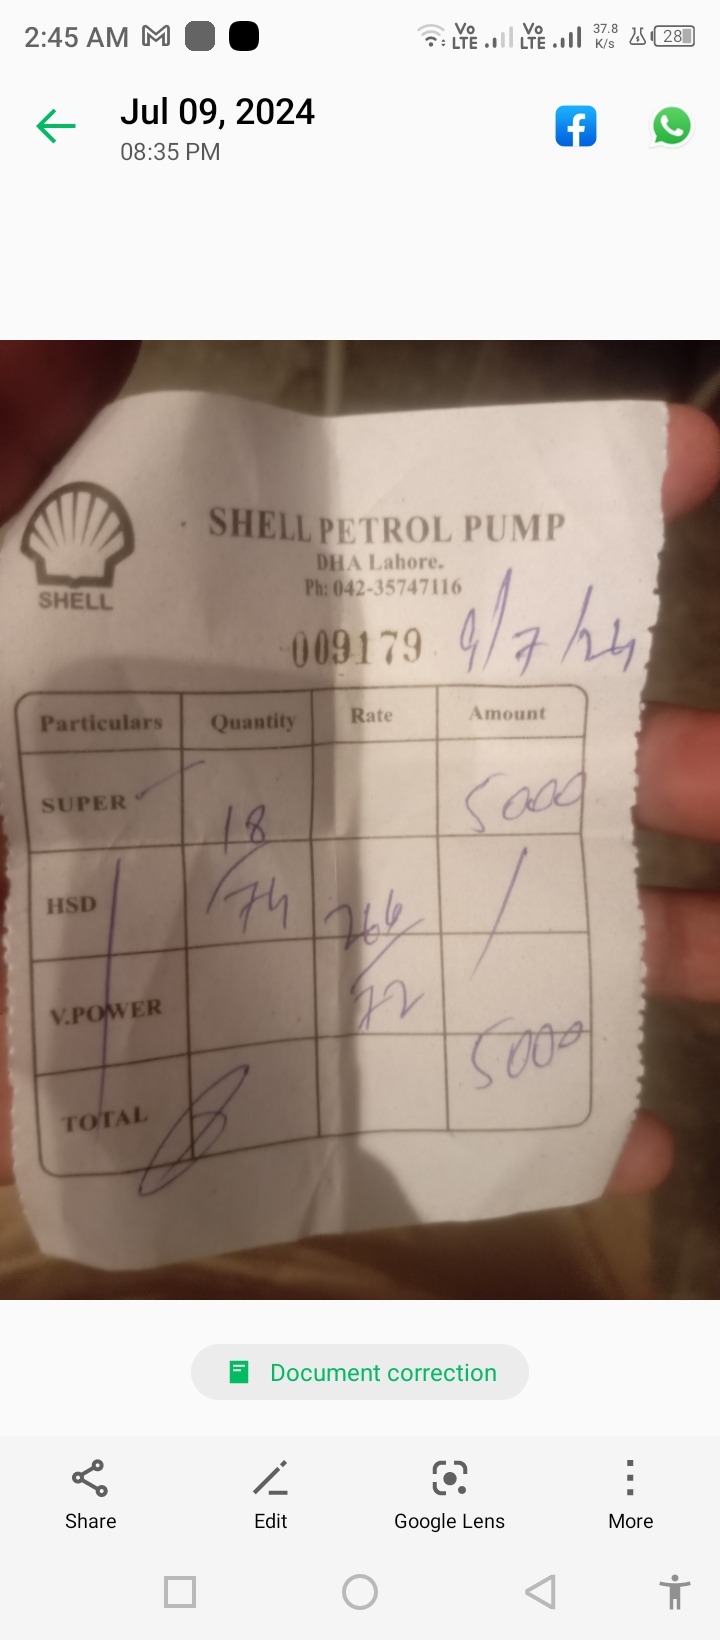 2:45 AM Vo LTE Vo LTE 37.8 K/s 28
Jul 09, 2024
08:35 PM
SHELL PETROL PUMP
DHA Lahore.
Ph: 042-35747116
SHELL
009179 9/7/24
Particulars Quantity Rate Amount
SUPER 18 5000
HSD /74 266
V.POWER /72
TOTAL 5000
Document correction
Share Edit Google Lens More